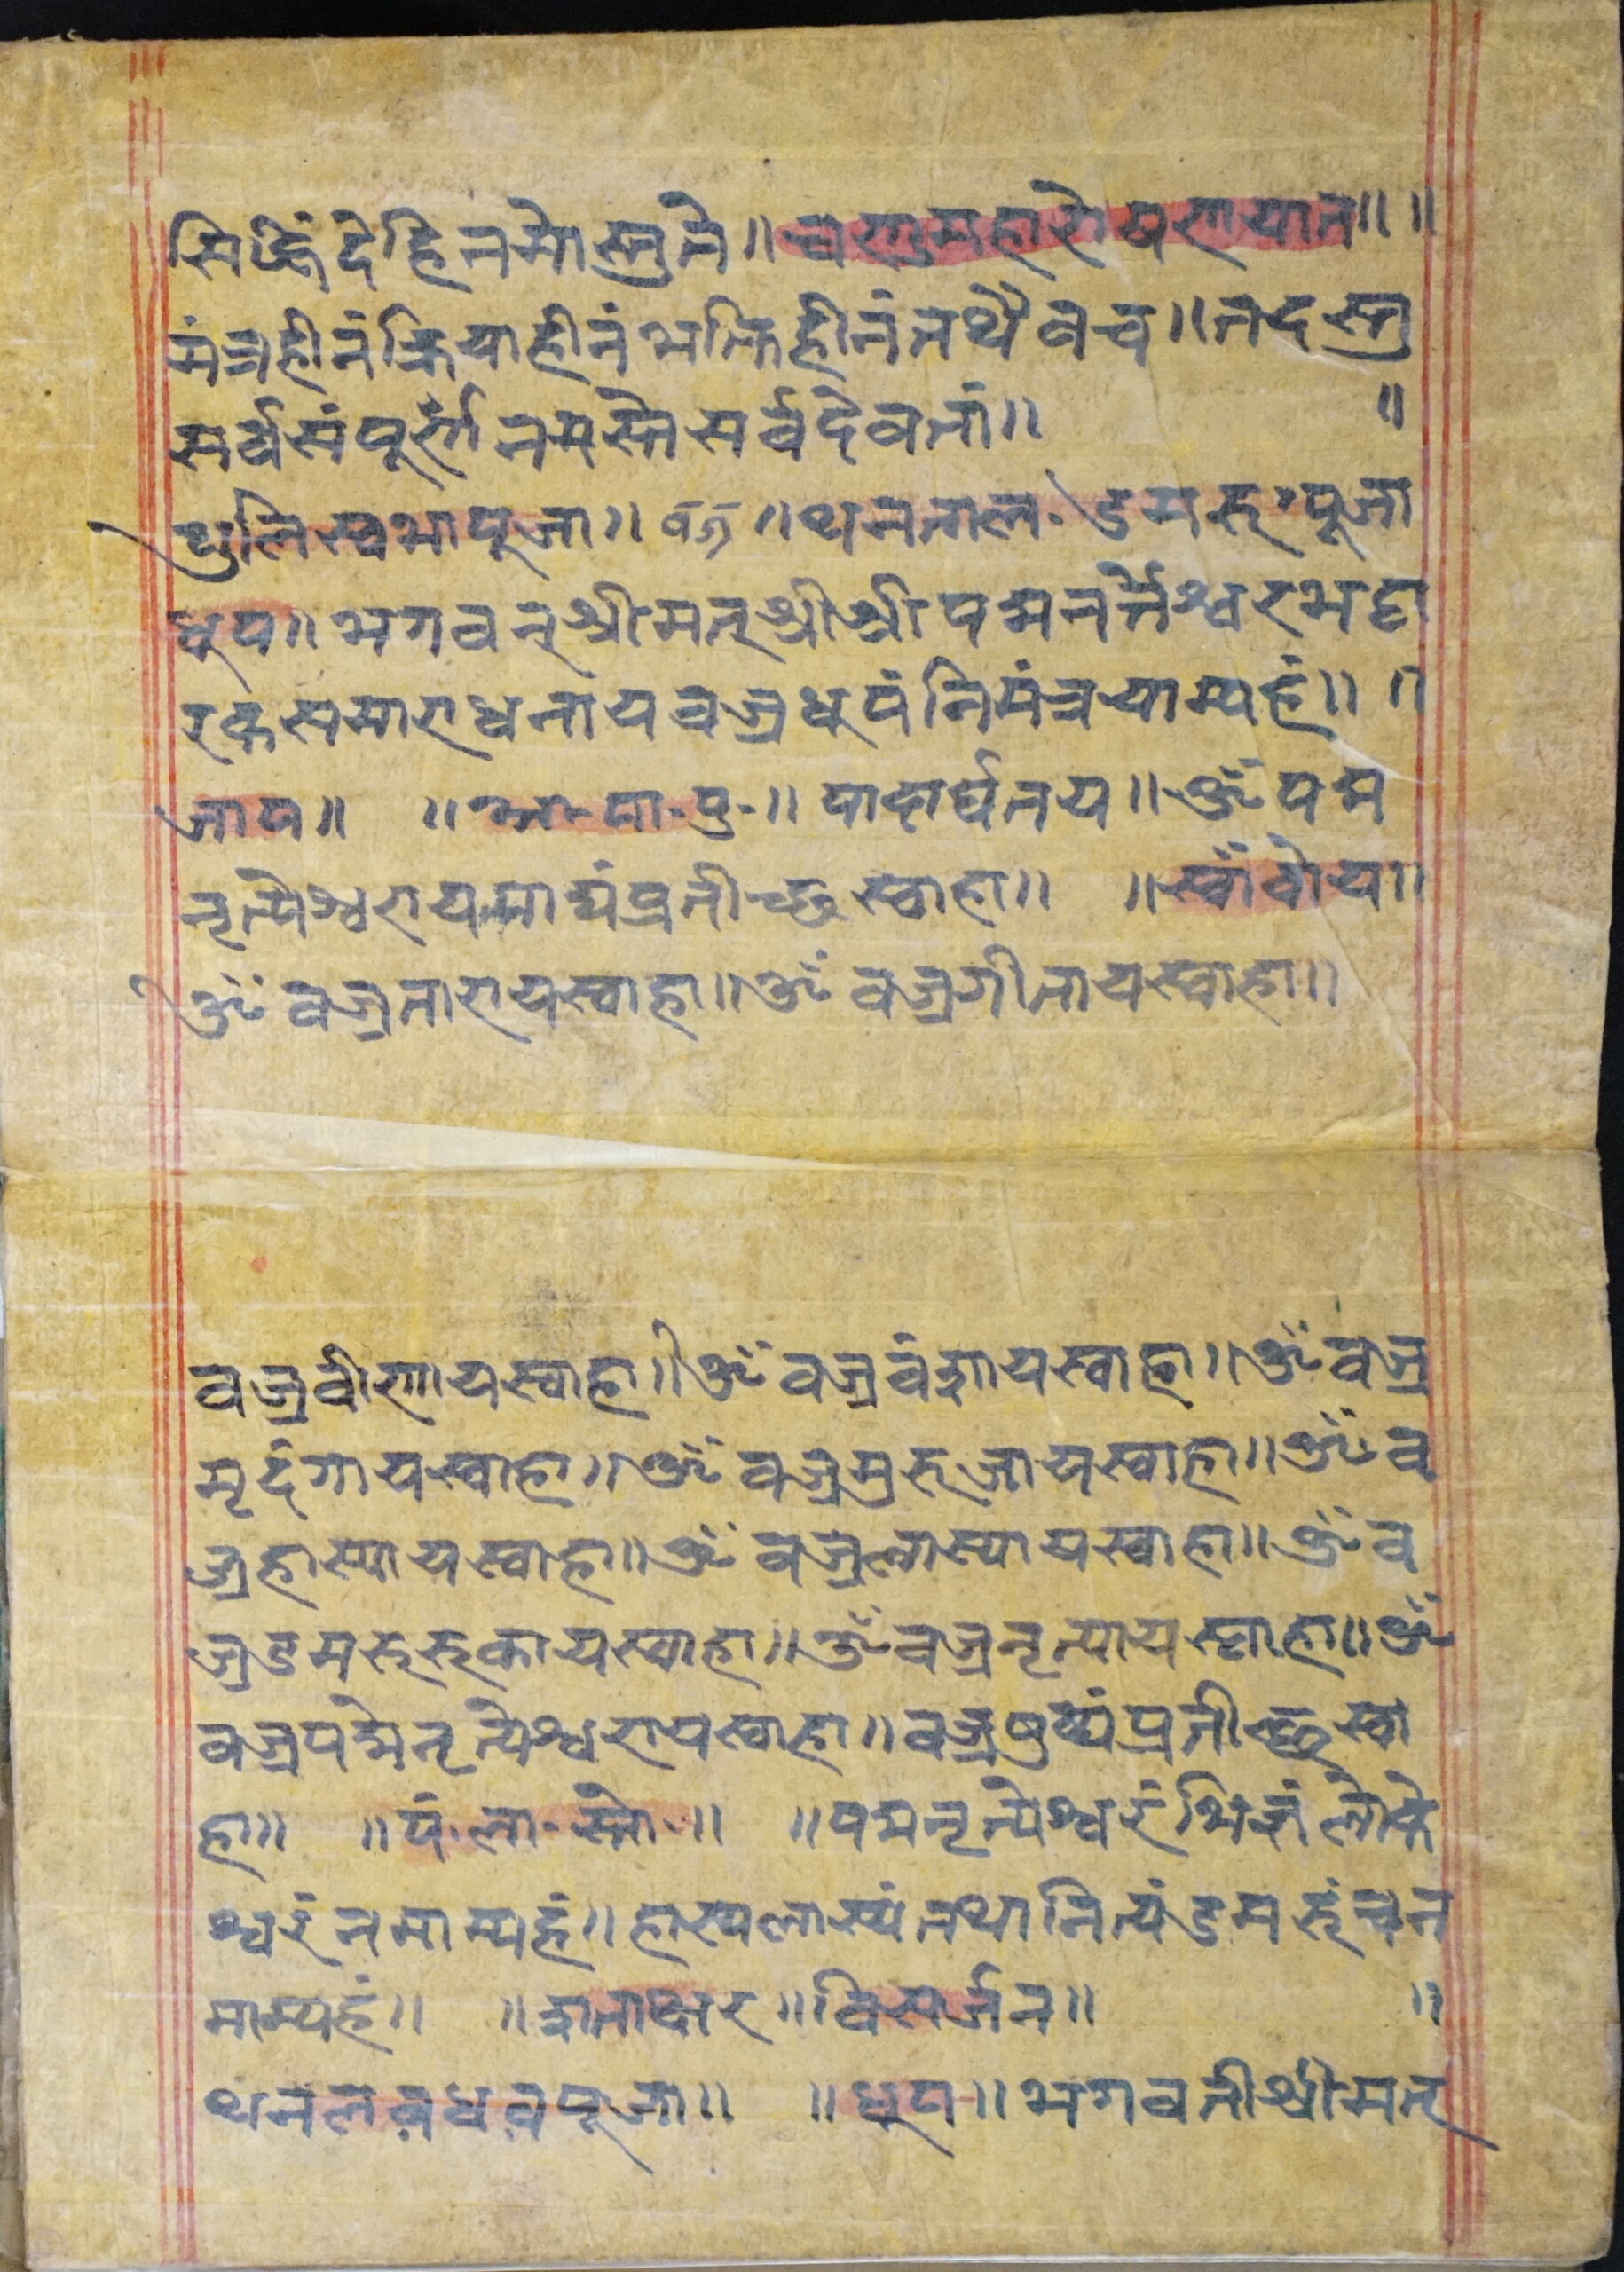 सिद्धिं देहि नमोस्तुते॥ चण्डमहारोषणयात॥ ॥
मंत्रहीनं क्रियाहीनं भक्तिहीनं तथैवच॥ तदस्तु
सर्व्व संपूर्ण्णं नमस्ते सर्व्वदेवतां॥ ॥
थुलि स्वभा पूजा॥ ॥ थनताल. डमरु. पूजा
धूप॥ भगवन् श्रीमत् श्रीश्रीपद्मनर्त्तेश्वर भट्टा
रकसमाराधनाय वज्रधूपं निमंत्रयाम्यहं॥ ॥
जाप॥ ॥ आ. पा. पु.॥ पादार्घतय॥ ॐ पद्म
नृत्येश्वराय पाद्यं प्रतीच्छ स्वाहा॥ ॥ स्वाँवोय॥
ॐ वज्रताराय स्वाहा॥ ॐ वज्रगीताय स्वाहा॥
वज्रवीणाय स्वाहा॥ ॐ वज्रवंशाय स्वाहा॥ ॐ वज्र
मृदंगाय स्वाहा॥ ॐ वज्रमुरुजाय स्वाहा॥ ॐ व
ज्रहास्याय स्वाहा॥ ॐ वज्रलास्याय स्वाहा॥ ॐ व
ज्रडमरुरुकाय स्वाहा॥ ॐ वज्रनृत्याय स्वाहा॥ ॐ
वज्रपद्मेनृत्येश्वराय स्वाहा॥ वज्रपुष्पं प्रतीच्छ स्वा
हा॥ ॥ पं. ला. स्तो.॥ ॥ पद्मनृत्येश्वरं भिन्नं लोके
श्वरं नमाम्यहं॥ हास्यलास्यं तथा नित्यं डमरुं च न
माम्यहं॥ ॥ शताक्षर॥ विसर्जन॥ ॥
थनलवधवपूजा॥ ॥ धूप॥ भगवती श्रीमत्